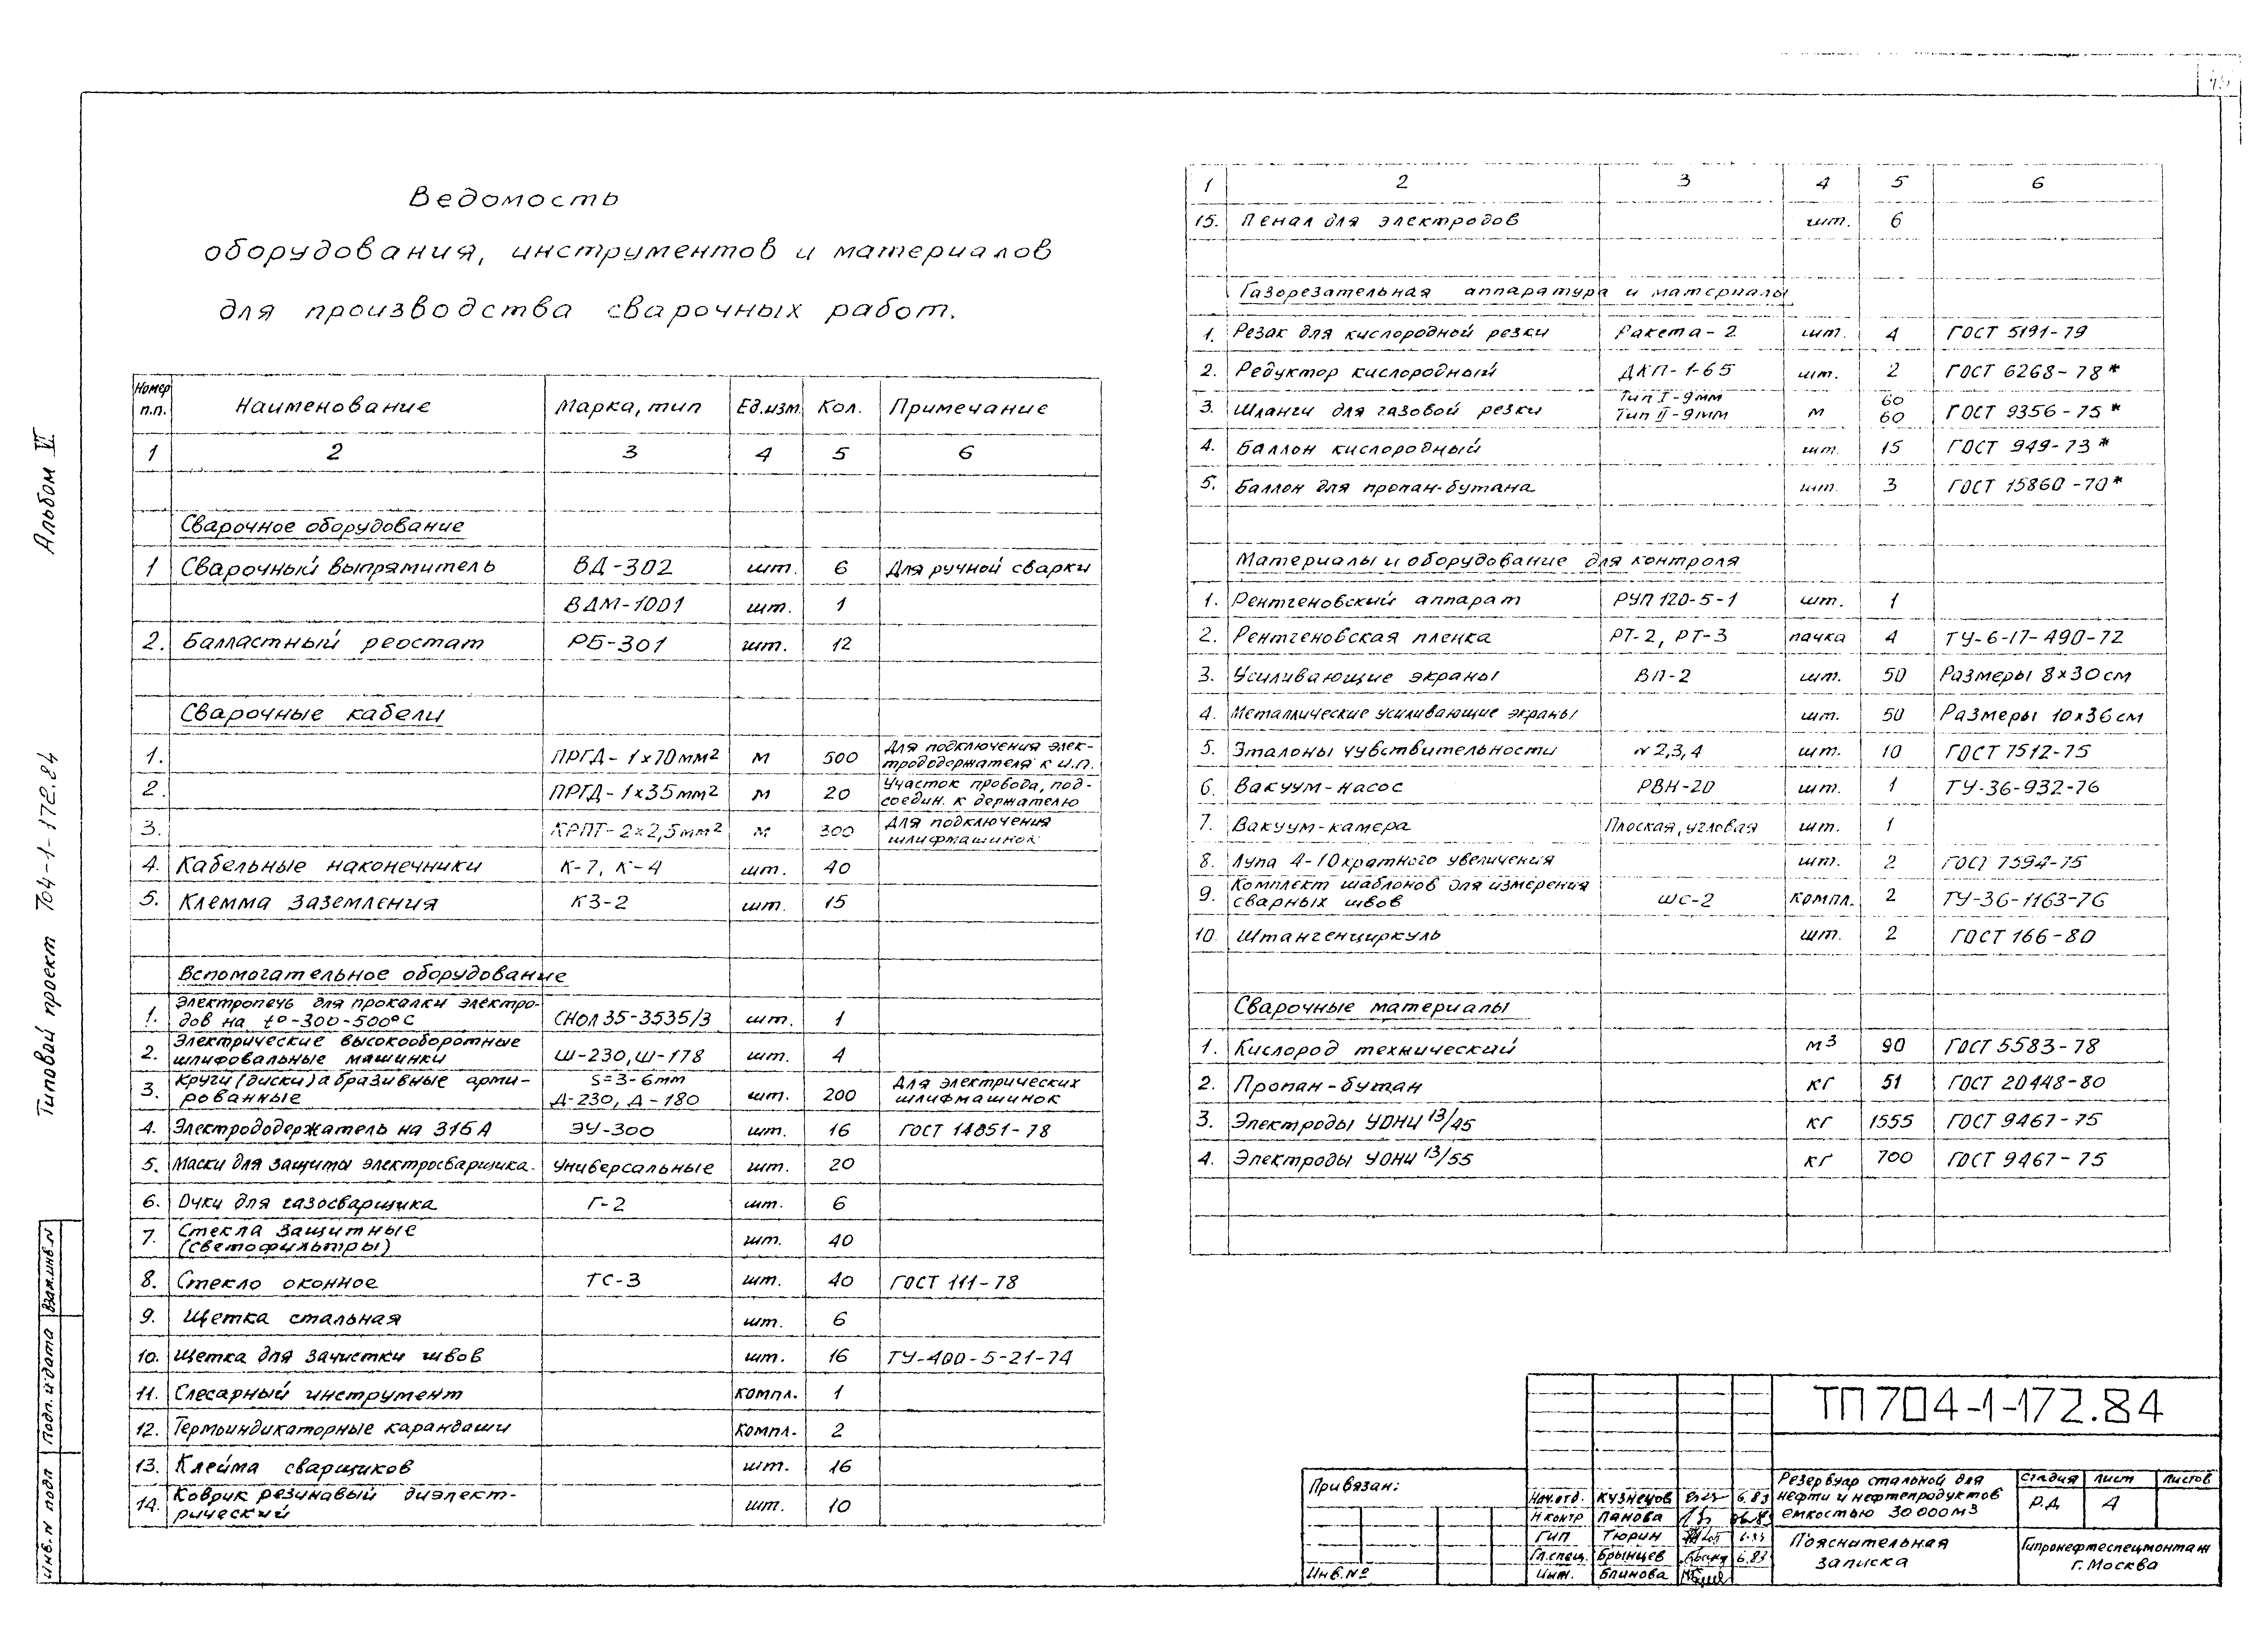 Альбом VI
Типовой проект 704-1-172.84
Ведомость
оборудования, инструментов и материалов
для производства сварочных работ.
Номер п.п. Наименование Марка, тип Ед.изм. Кол. Примечание
1 2 3 4 5 6
Сварочное оборудование
1 Сварочный выпрямитель ВД-302 шт. 6 Для ручной сварки
ВДМ-1001 шт. 1
2. Балластный реостат РБ-301 шт. 12
Сварочные кабели
1. ПРГД-1х70мм² м 500 Для подключения элек-
трододержателя к и.п.
2. ПРГД-1х35мм² м 20 Участок провода, под-
соедин. к держателю
3. КРПТ-2х2,5мм² м 300 Для подключения
шлифмашинок
4. Кабельные наконечники К-7, К-4 шт. 40
5. Клемма заземления КЗ-2 шт. 15
Вспомогательное оборудование
1. Электропечь для прокалки электро-
дов на t°-300-500°С СНОЛ 35-3535/3 шт. 1
2. Электрические высокооборотные
шлифовальные машинки Ш-230, Ш-178 шт. 4
3. Круги (диски) абразивные арми-
рованные S=3-6мм
Д-230, Д-180 шт. 200 Для электрических
шлифмашинок
4. Электрододержатель на 315А ЭУ-300 шт. 16 ГОСТ 14651-78
5. Маски для защиты электросварщика. Универсальные шт. 20
6. Очки для газосварщика Г-2 шт. 6
7. Стекла защитные
(светофильтры) шт. 40
8. Стекло оконное ТС-3 шт. 40 ГОСТ 111-78
9. Щетка стальная шт. 6
10. Щетка для зачистки швов шт. 16 ТУ-400-5-21-74
11. Слесарный инструмент компл. 1
12. Термоиндикаторные карандаши компл. 2
13. Клейма сварщиков шт. 16
14. Коврик резинавый диэлект-
рический шт. 10
1 2 3 4 5 6
15. Пенал для электродов шт. 6
Газорезательная аппаратура и материалы
1. Резак для кислородной резки Ракета-2 шт. 4 ГОСТ 5191-79
2. Редуктор кислородный ДКП-1-65 шт. 2 ГОСТ 6268-78*
3. Шланги для газовой резки Тип I-9мм
Тип II-9мм м 60
60 ГОСТ 9356-75*
4. Баллон кислородный шт. 15 ГОСТ 949-73*
5. Баллон для пропан-бутана шт. 3 ГОСТ 15860-70*
Материалы и оборудование для контроля
1. Рентгеновский аппарат РУП 120-5-1 шт. 1
2. Рентгеновская пленка РТ-2, РТ-3 пачка 4 ТУ-6-17-490-72
3. Усиливающие экраны ВП-2 шт. 50 Размеры 8х30см
4. Металлические усиливающие экраны шт. 50 Размеры 10х36см
5. Эталоны чувствительности N2,3,4 шт. 10 ГОСТ 7512-75
6. Вакуум-насос РВН-20 шт. 1 ТУ-36-932-76
7. Вакуум-камера Плоская, угловая шт. 1
8. Лупа 4-10кратного увеличения шт. 2 ГОСТ 7594-75
9. Комплект шаблонов для измерения
сварных швов ШС-2 компл. 2 ТУ-36-1163-76
10. Штангенциркуль шт. 2 ГОСТ 166-80
Сварочные материалы
1. Кислород технический м³ 90 ГОСТ 5583-78
2. Пропан-бутан кг 51 ГОСТ 20448-80
3. Электроды УОНИ 13/45 кг 1555 ГОСТ 9467-75
4. Электроды УОНИ 13/55 кг 700 ГОСТ 9467-75
ТП 704-1-172.84
Привязан:
Инв.№
Нач.отд. Кузнецов 6.83
Н контр Панова
ГИП Тюрин
Гл.спец. Брынцев 6.83
Инж. Блинова
Резервуар стальной для
нефти и нефтепродуктов
емкостью 30000м³
Стадия Лист Листов
Р.Д. 4
Пояснительная
записка
Гипронефтеспецмонтаж
г. Москва
Взам.инв.N
Подп. и дата
Инв.N подл